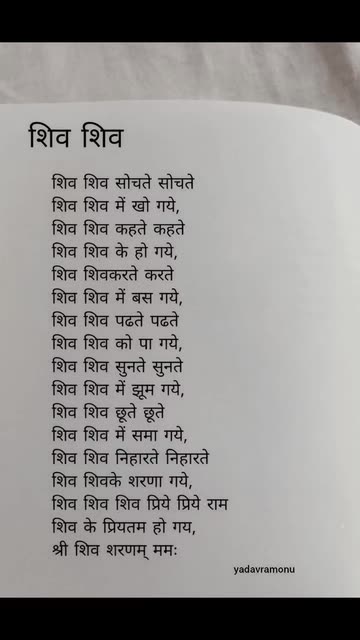 शिव शिव
शिव शिव सोचते सोचते
शिव शिव में खो गये,
शिव शिव कहते कहते
शिव शिव के हो गये,
शिव शिवकरते करते
शिव शिव में बस गये,
शिव शिव पढते पढते
शिव शिव को पा गये,
शिव शिव सुनते सुनते
शिव शिव में झूम गये,
शिव शिव छूते छूते
शिव शिव में समा गये,
शिव शिव निहारते निहारते
शिव शिवके शरणा गये,
शिव शिव शिव प्रिये प्रिये राम
शिव के प्रियतम हो गय,
श्री शिव शरणम् ममः
yadavramonu